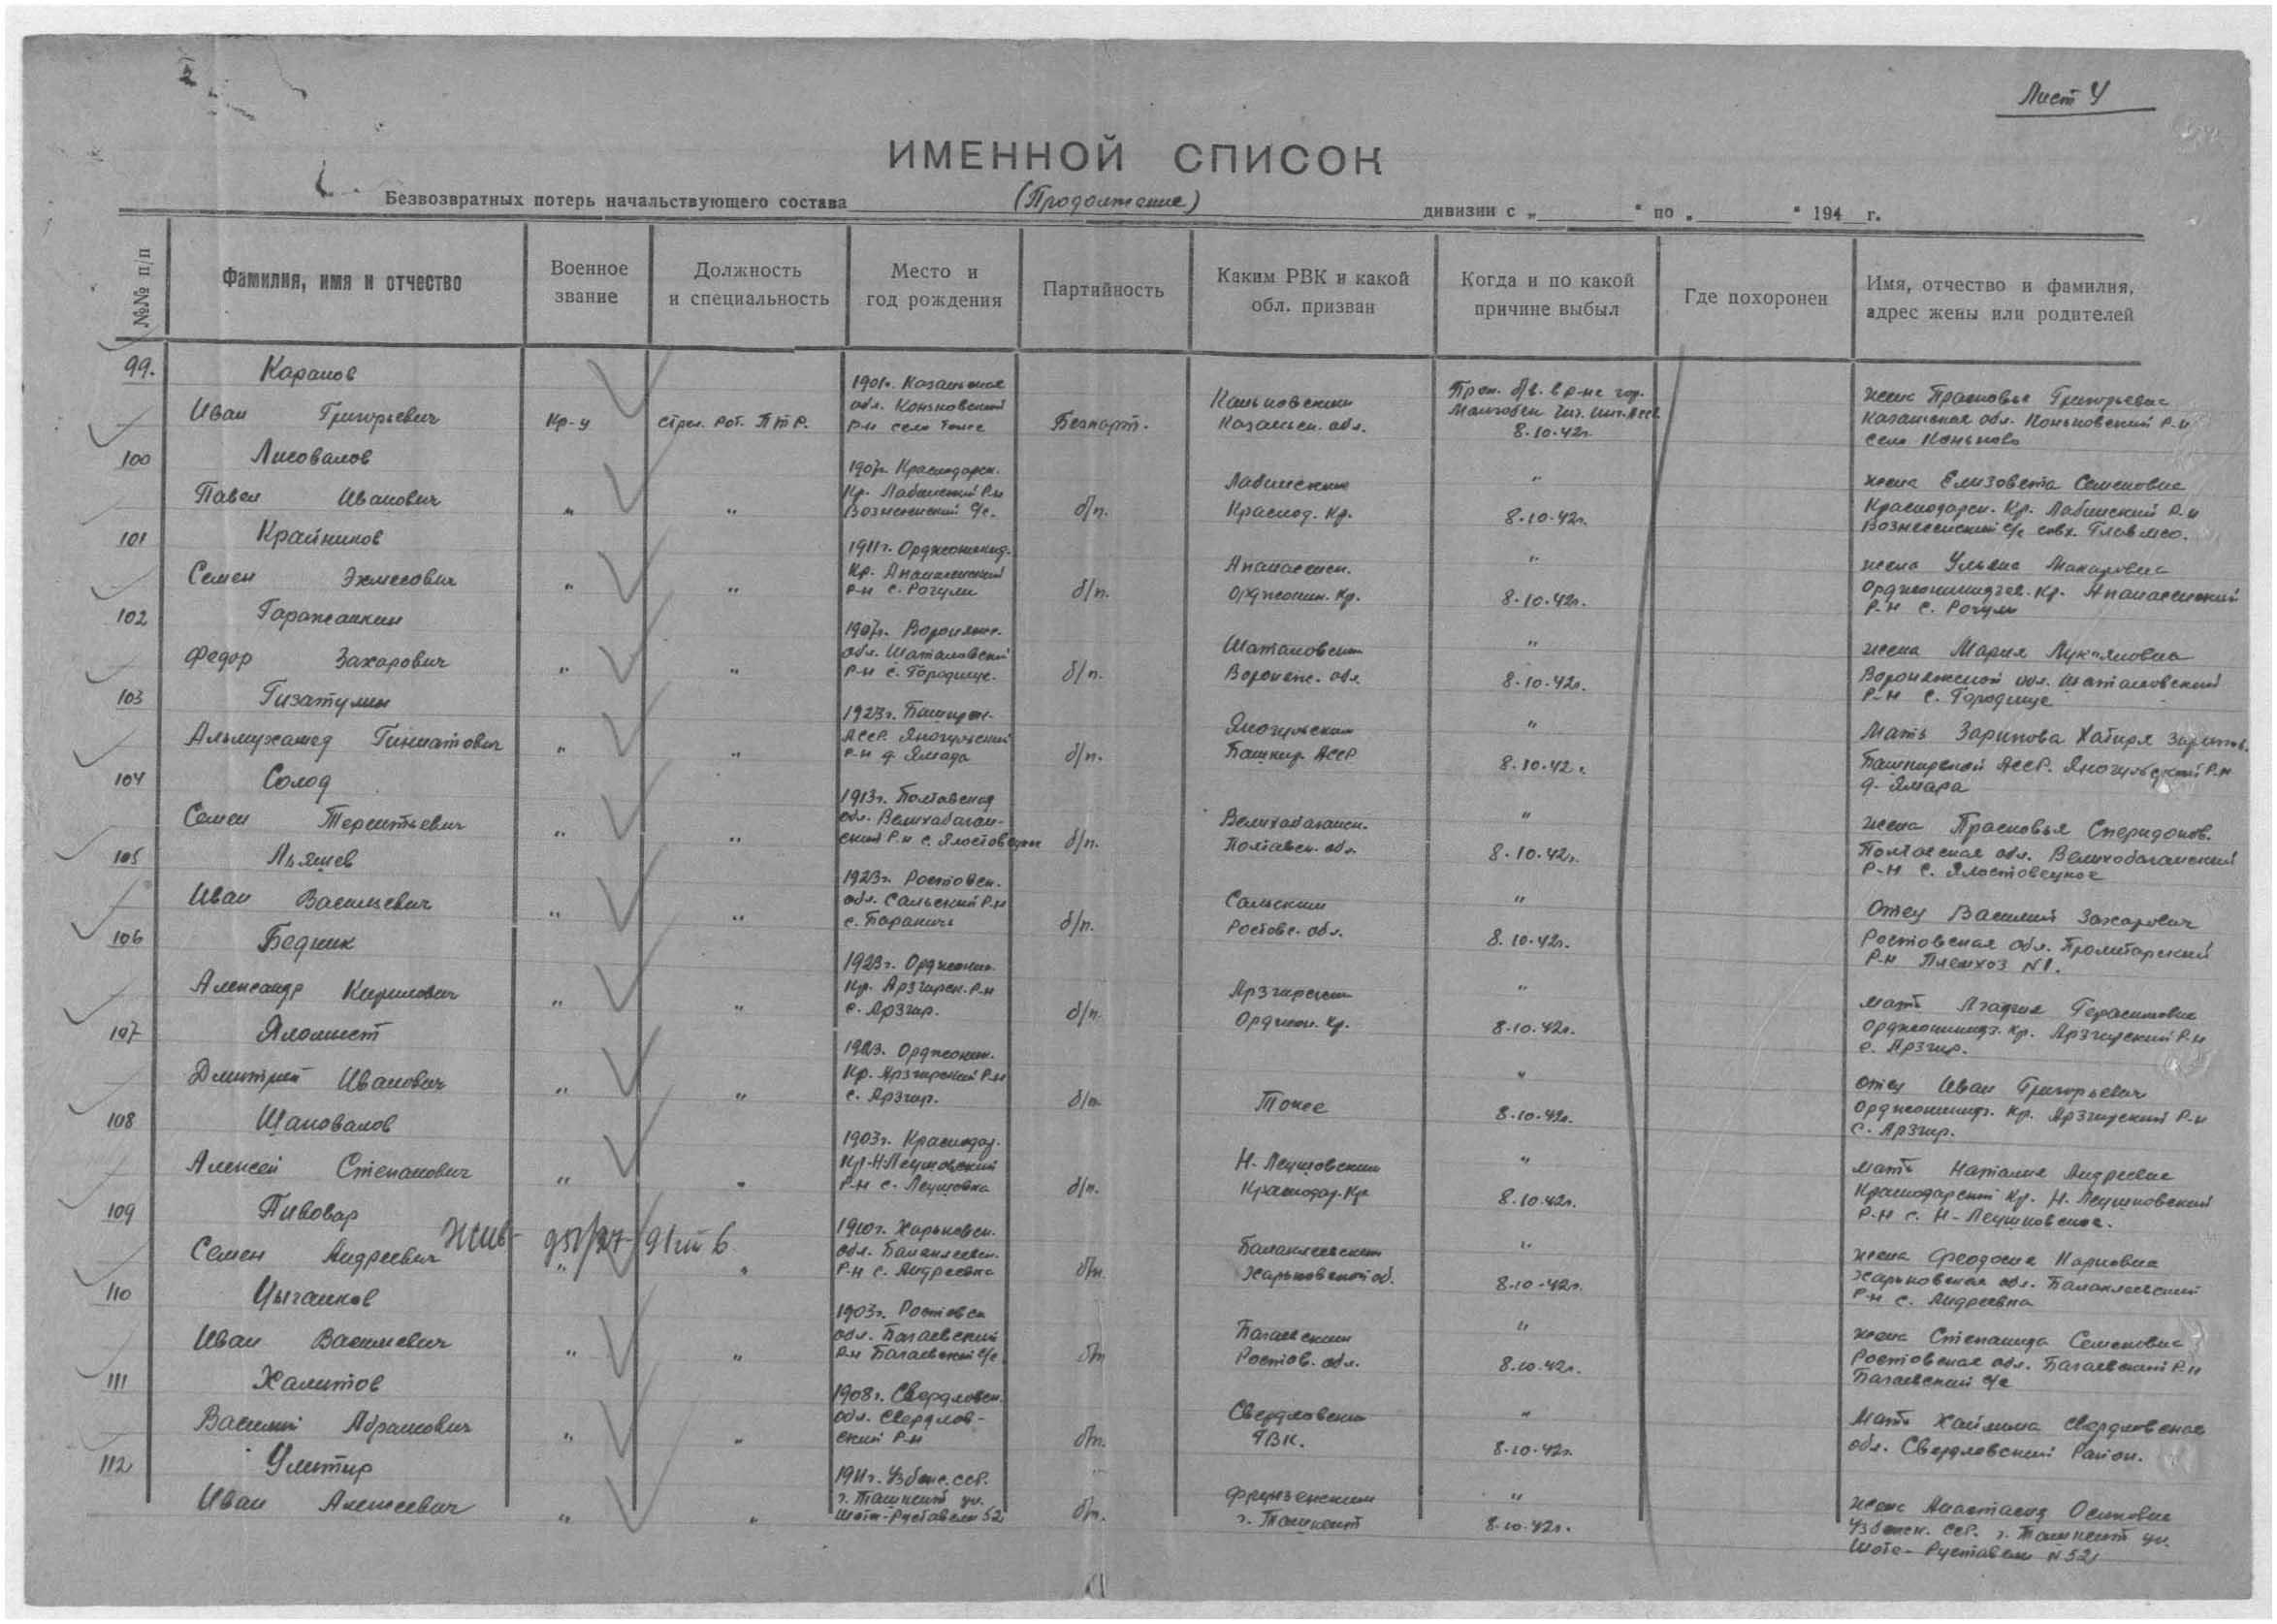 Лист 4
ИМЕННОЙ СПИСОК
Безвозвратных потерь начальствующего состава (Продолжение) дивизии с „ “ по „ “ 194 г.
№№ п/п
Фамилия, имя и отчество
Военное звание
Должность и специальность
Место и год рождения
Партийность
Каким РВК и какой обл. призван
Когда и по какой причине выбыл
Где похоронен
Имя, отчество и фамилия, адрес жены или родителей
99. Карапов
Иван Григорьевич
Кр-ц
стрел. рот. ПТР.
1901г. Казанская
обл.
р-н село тоже
Беспарт.
Казанск. обл.
Проп. б/в. в р-не гор.
8.10.42г.
жена Прасковья Григорьевна
Казанская обл. Р-н
село Коньково
100 Лисовалов
Павел Иванович
" "
1907г. Краснодарск.
Кр. Лабинский Р-н
Вознесенский с/с.
б/п.
Лабинским
Краснод. Кр.
"
8.10.42г.
жена Елизовета Семеновна
Краснодарск. Кр. Лабинский Р-н
Вознесенский с/с совх.
101 Крайников
Семен
" "
1911г. Орджоникид.
Кр. Апанасенский
р-н с. Рогули
б/п.
Апанасенск.
Орджоник. Кр.
"
8.10.42г.
жена Ульяна Макаровна
Орджоникидзев. Кр. Апанасенский
Р-н с. Рогули
102 Гаражанкин
Федор Захарович
" "
1907г. Воронеж.
обл. Шаталовский
Р-н с. Городище.
б/п.
Шаталовским
Воронеж. обл.
"
8.10.42г.
жена Мария Лукъяновна
Воронежской обл. Шаталовский
Р-н с. Городище
103 Гизатулин
Альмухамед Гиниатович
" "
1923г. Башкирс.
АССР. Яногульский
р-н д. Ямада
б/п.
Яногульским
Башкир АССР
"
8.10.42г.
Мать Зарипова Хабиря
Башкирской АССР. Яногульский Р-н
д. Ямара
104 Солод
Семен Терентьевич
" "
1913г. Полтавская
обл. Великабаган-
ский Р-н с.
б/п.
Великабаганск.
Полтавск. обл.
"
8.10.42г.
жена Прасковья Спиридонов.
Полтавская обл. Великобаганский
Р-н с. Ялостовецкое
105 Льяшев
Иван Васильевич
" "
1923г. Ростовск.
обл. Сальский Р-н
с. Бараничи
б/п.
Сальским
Ростовс. обл.
"
8.10.42г.
Отец Василий Захарович
Ростовская обл. Пролитарский
Р-н Племхоз №1.
106 Бедник
Александр Кирилович
" "
1923г. Орджоник.
Кр. Арзгирск. Р-н
с. Арзгир.
б/п.
Арзгирским
Орджон. Кр.
"
8.10.42г.
Мать Герасимовна
Орджоникидз. Кр. Арзгирский Р-н
с. Арзгир.
107 Яломист
Дмитрий Иванович
" "
1923. Орджоник.
Кр. Арзгирский Р-н
с. Арзгир.
б/п
Тоже
"
8.10.42г.
Отец Иван Григорьевич
Орджоникидз. Кр. Арзгирский Р-н
с. Арзгир.
108 Шаповалов
Алексей Степанович
" "
1903г. Краснодар.
Кр. Н-Леушковский
Р-н с. Леушовка
б/п.
Н-Леушовским
Краснодар. Кр
"
8.10.42г.
Мать Наталия Андреевна
Краснодарский Кр. Н. Леушковский
Р-н с. Н-Леушковское.
109 Пивовар
Семен Андреевич
жив-
" "
1910г. Харьковск.
обл. Балаклеевск.
Р-н с. Андреевка
б/п.
Балаклеевским
Харьковской об.
"
8.10.42г.
жена Феодосия Карповна
Харьковская обл. Балаклеевский
Р-н с. Андреевка
110 Цыганков
Иван Васильевич
" "
1903г. Ростовск
обл. Багаевский
Р-н Багаевский с/с
б/п
Багаевским
Ростов. обл.
"
8.10.42г.
жена Степанида Семеновна
Ростовская обл. Багаевский Р-н
Багаевский с/с
111 Халитов
Василий Абрамович
" "
1908г. Свердловск.
обл. Свердлов-
ский Р-н
б/п.
Свердловским
ГВК.
"
8.10.42г.
Мать Свердловская
обл. Свердловский Район.
112 Улитир
Иван Алексеевич
" "
1911г. Узбекс. ССР.
г. Ташкент ул.
Шота-Руставели 52
б/п.
Фрунзенским
г. Ташкент
"
8.10.42г.
жена Анастасия Осиповна
Узбекск. ССР. г. Ташкент ул.
Шота-Руставели №52